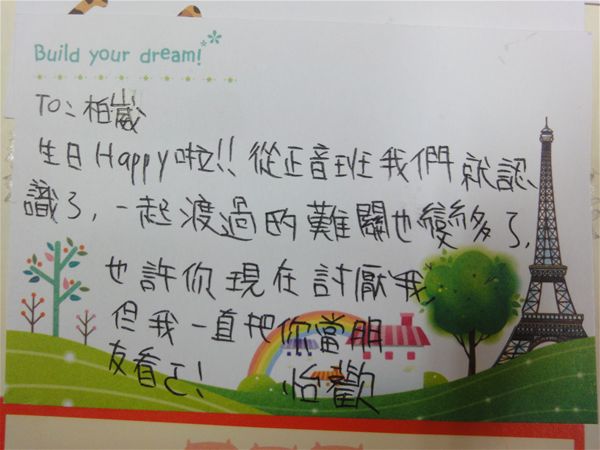 Build your dream!
TO:柏崴
生日Happy啦!!從正音班我們就認
識了,一起渡過的難關也變多了,
也許你現在討厭我
但我一直把你當朋
友看已!怡歡